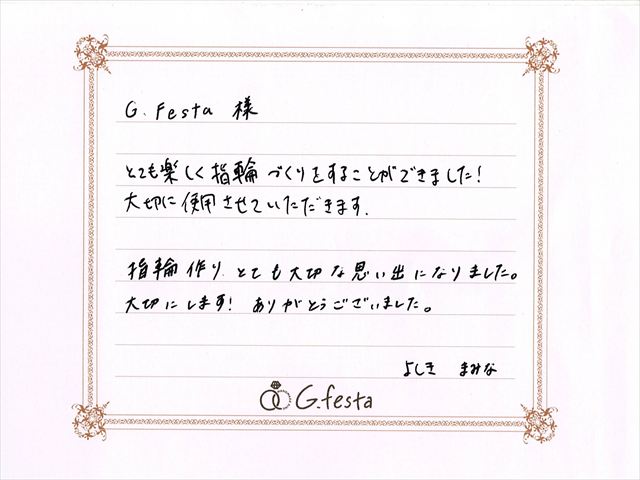 G. Festa 様
とても楽しく指輪づくりをすることができました!
大切に使用させていただきます.
指輪作り、とても大切な思い出になりました。
大切にします! ありがとうございました。
よしき まみな
G.festa